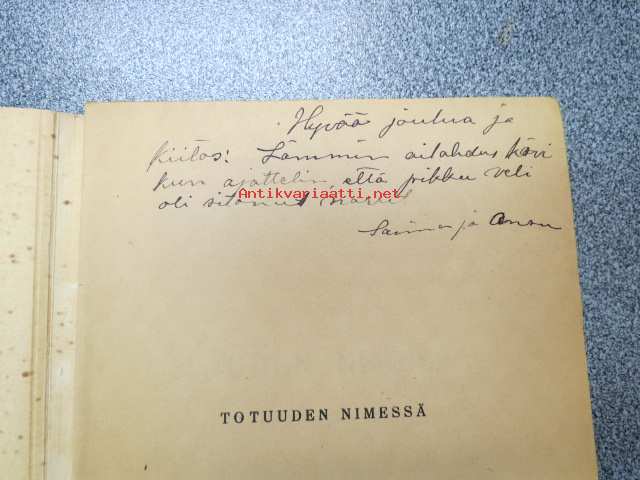 Hyvää joulua ja
Kiitos! Lämmin ailahdus kävi
kun ajattelin että pikku veli
Antikvariaatti.net
oli sitonut
Saima ja
TOTUUDEN NIMESSÄ